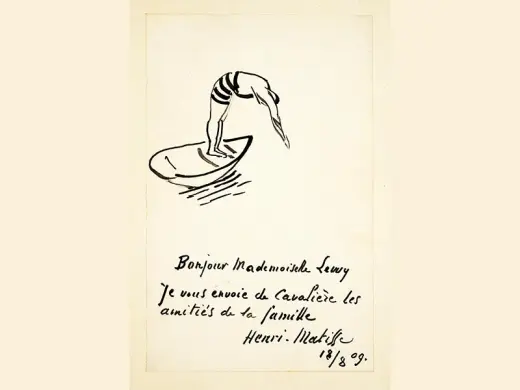 Bonjour Mademoiselle Levvy
Je vous envoie de Cavalière les
amitiés de la famille
Henri. Matisse
18/8 09.